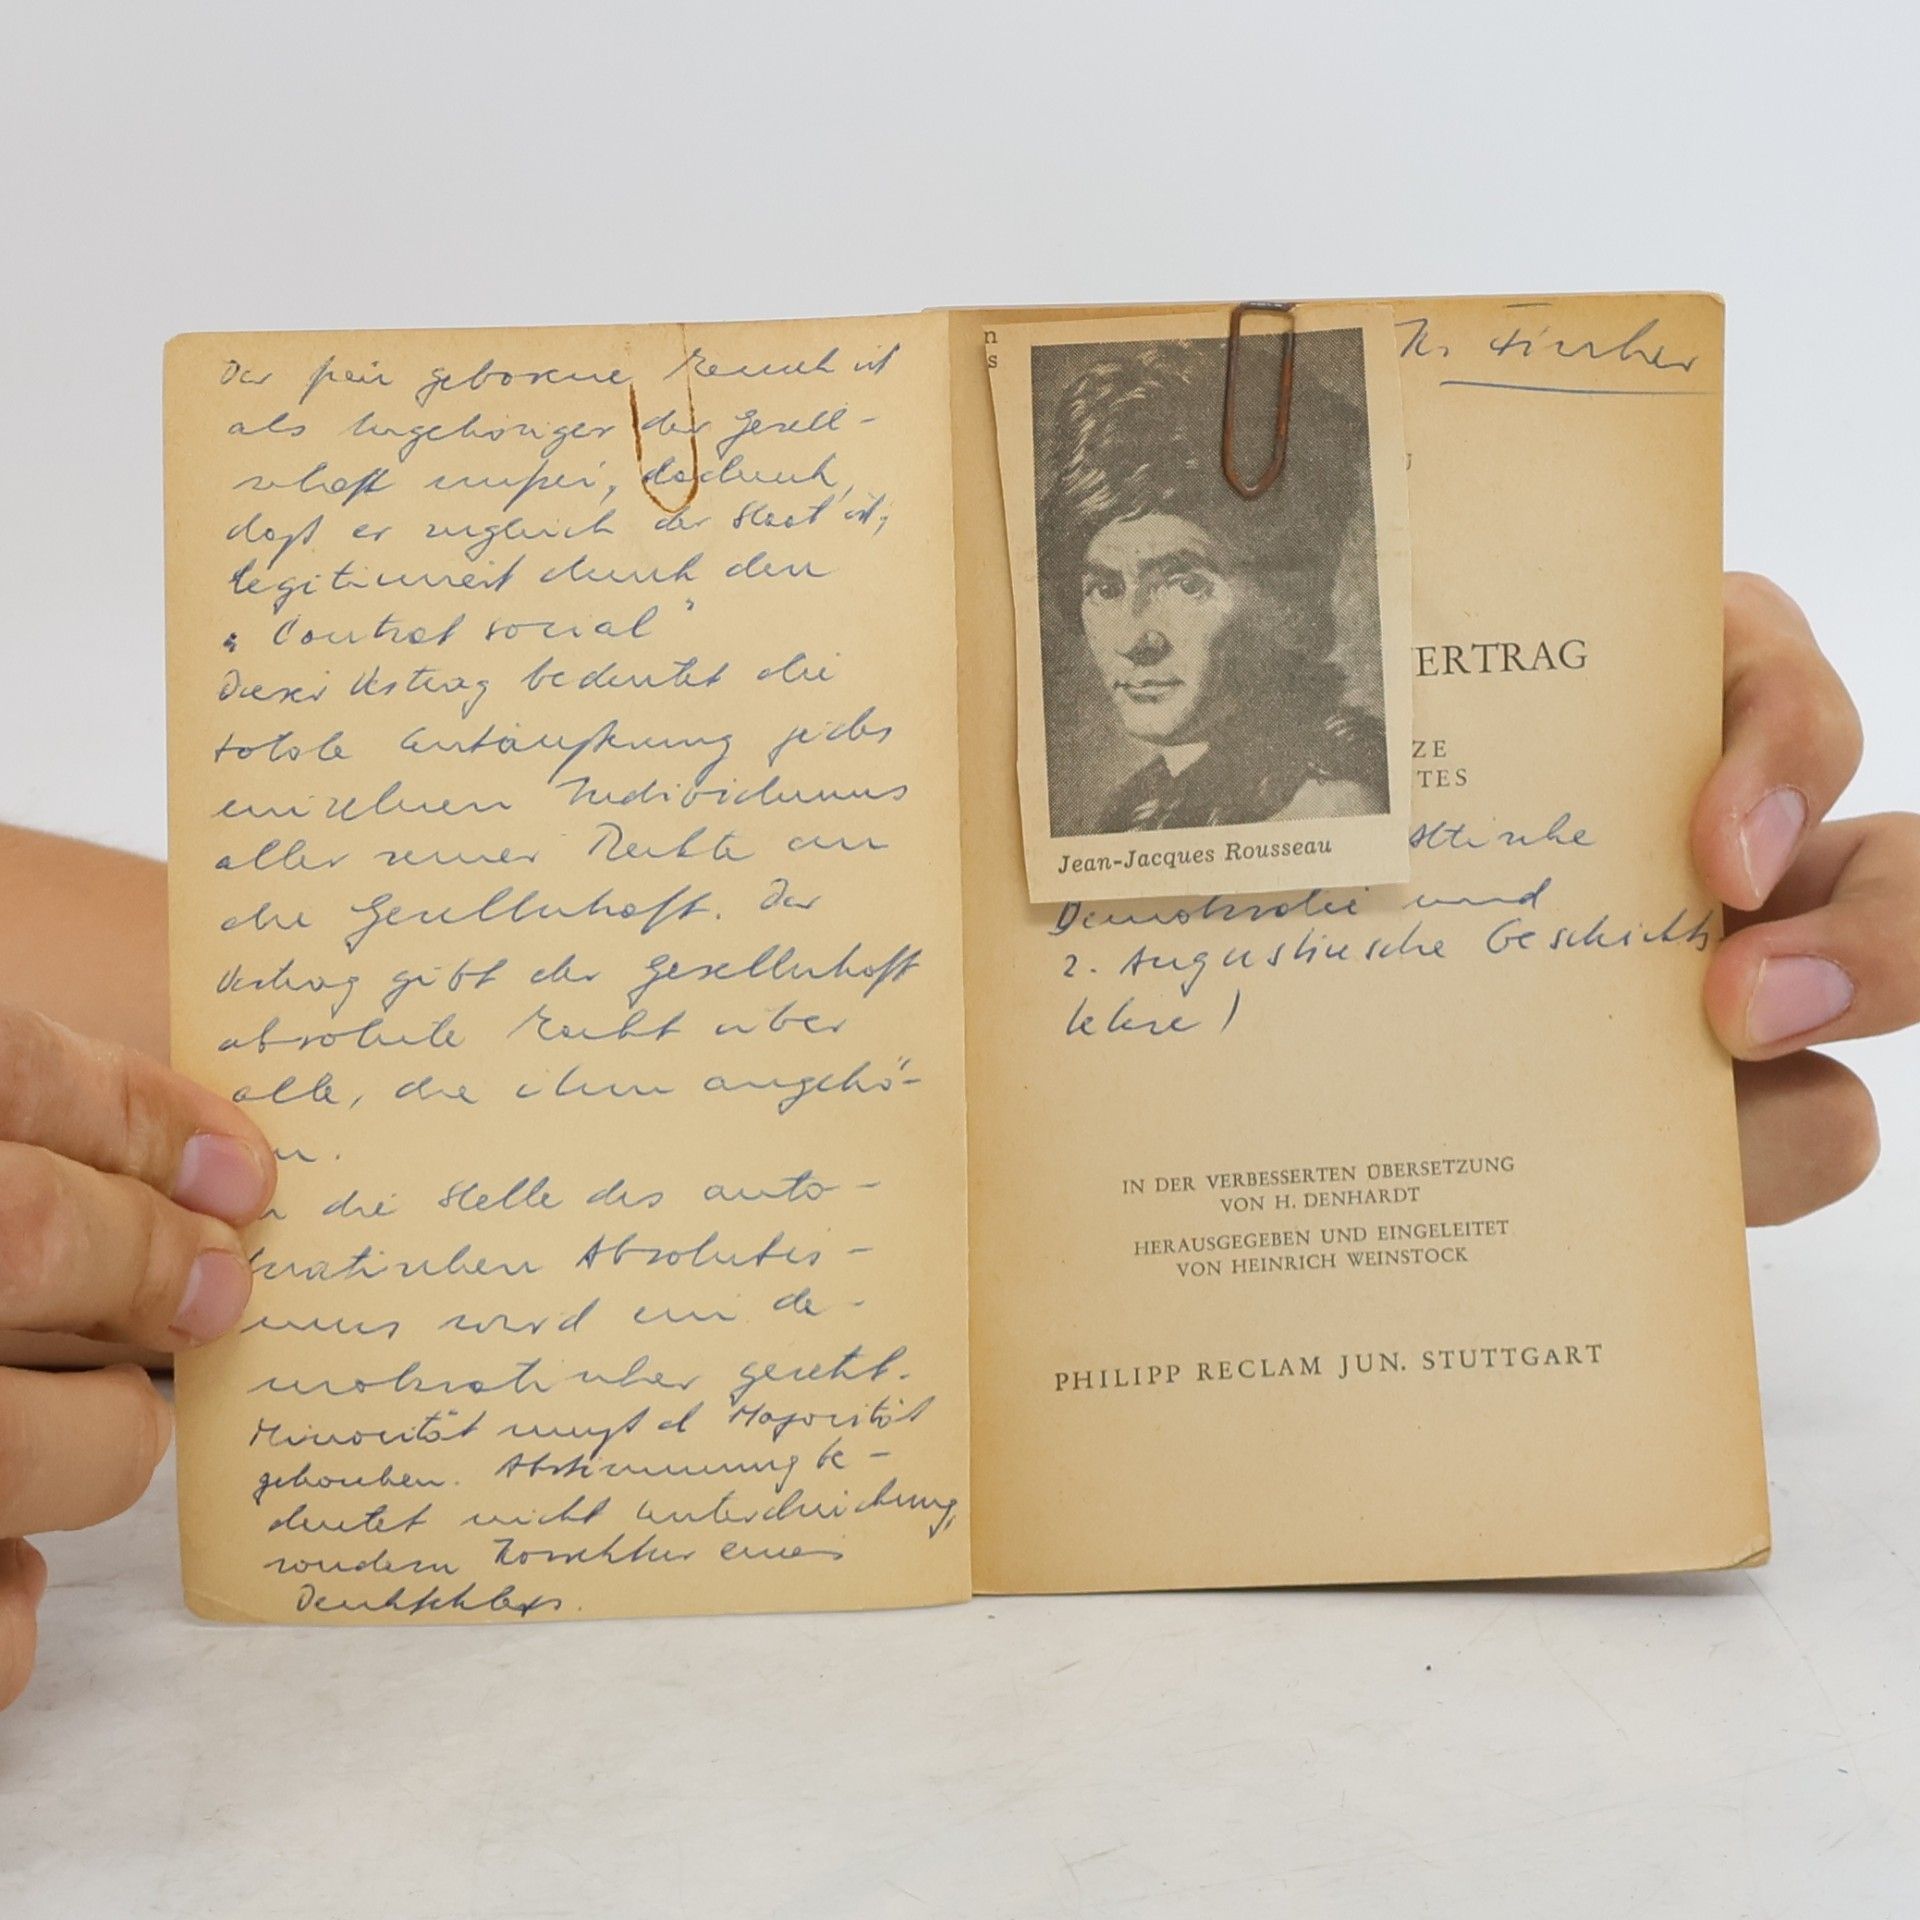 Der frei geborene Mensch ist
als Angehöriger der Gesell-
schaft unfrei, dadurch,
daß er zugleich der Staat ist,
legitimiert durch den
„Contrat social"
Dieser Vertrag bedeutet die
totale Entäußerung jedes
einzelnen Individuums
aller seiner Rechte an
die Gesellschaft. Der
Vertrag gibt der Gesellschaft
absolute Recht über
alle, die ihm angehö-
n.
die Stelle des auto-
kratischen Absolutis-
mus wird ein de-
mokratischer gesetzt.
Minorität muß d Majorität
gehorchen. Abstimmung be-
deutet nicht Unterdrückung,
sondern Korrektur eines
n
s
Jean-Jacques Rousseau
Fischer
ERTRAG
ZE
TES
Demokratie und
2. Augustinische Geschichts
lehre)
IN DER VERBESSERTEN ÜBERSETZUNG
VON H. DENHARDT
HERAUSGEGEBEN UND EINGELEITET
VON HEINRICH WEINSTOCK
PHILIPP RECLAM JUN. STUTTGART